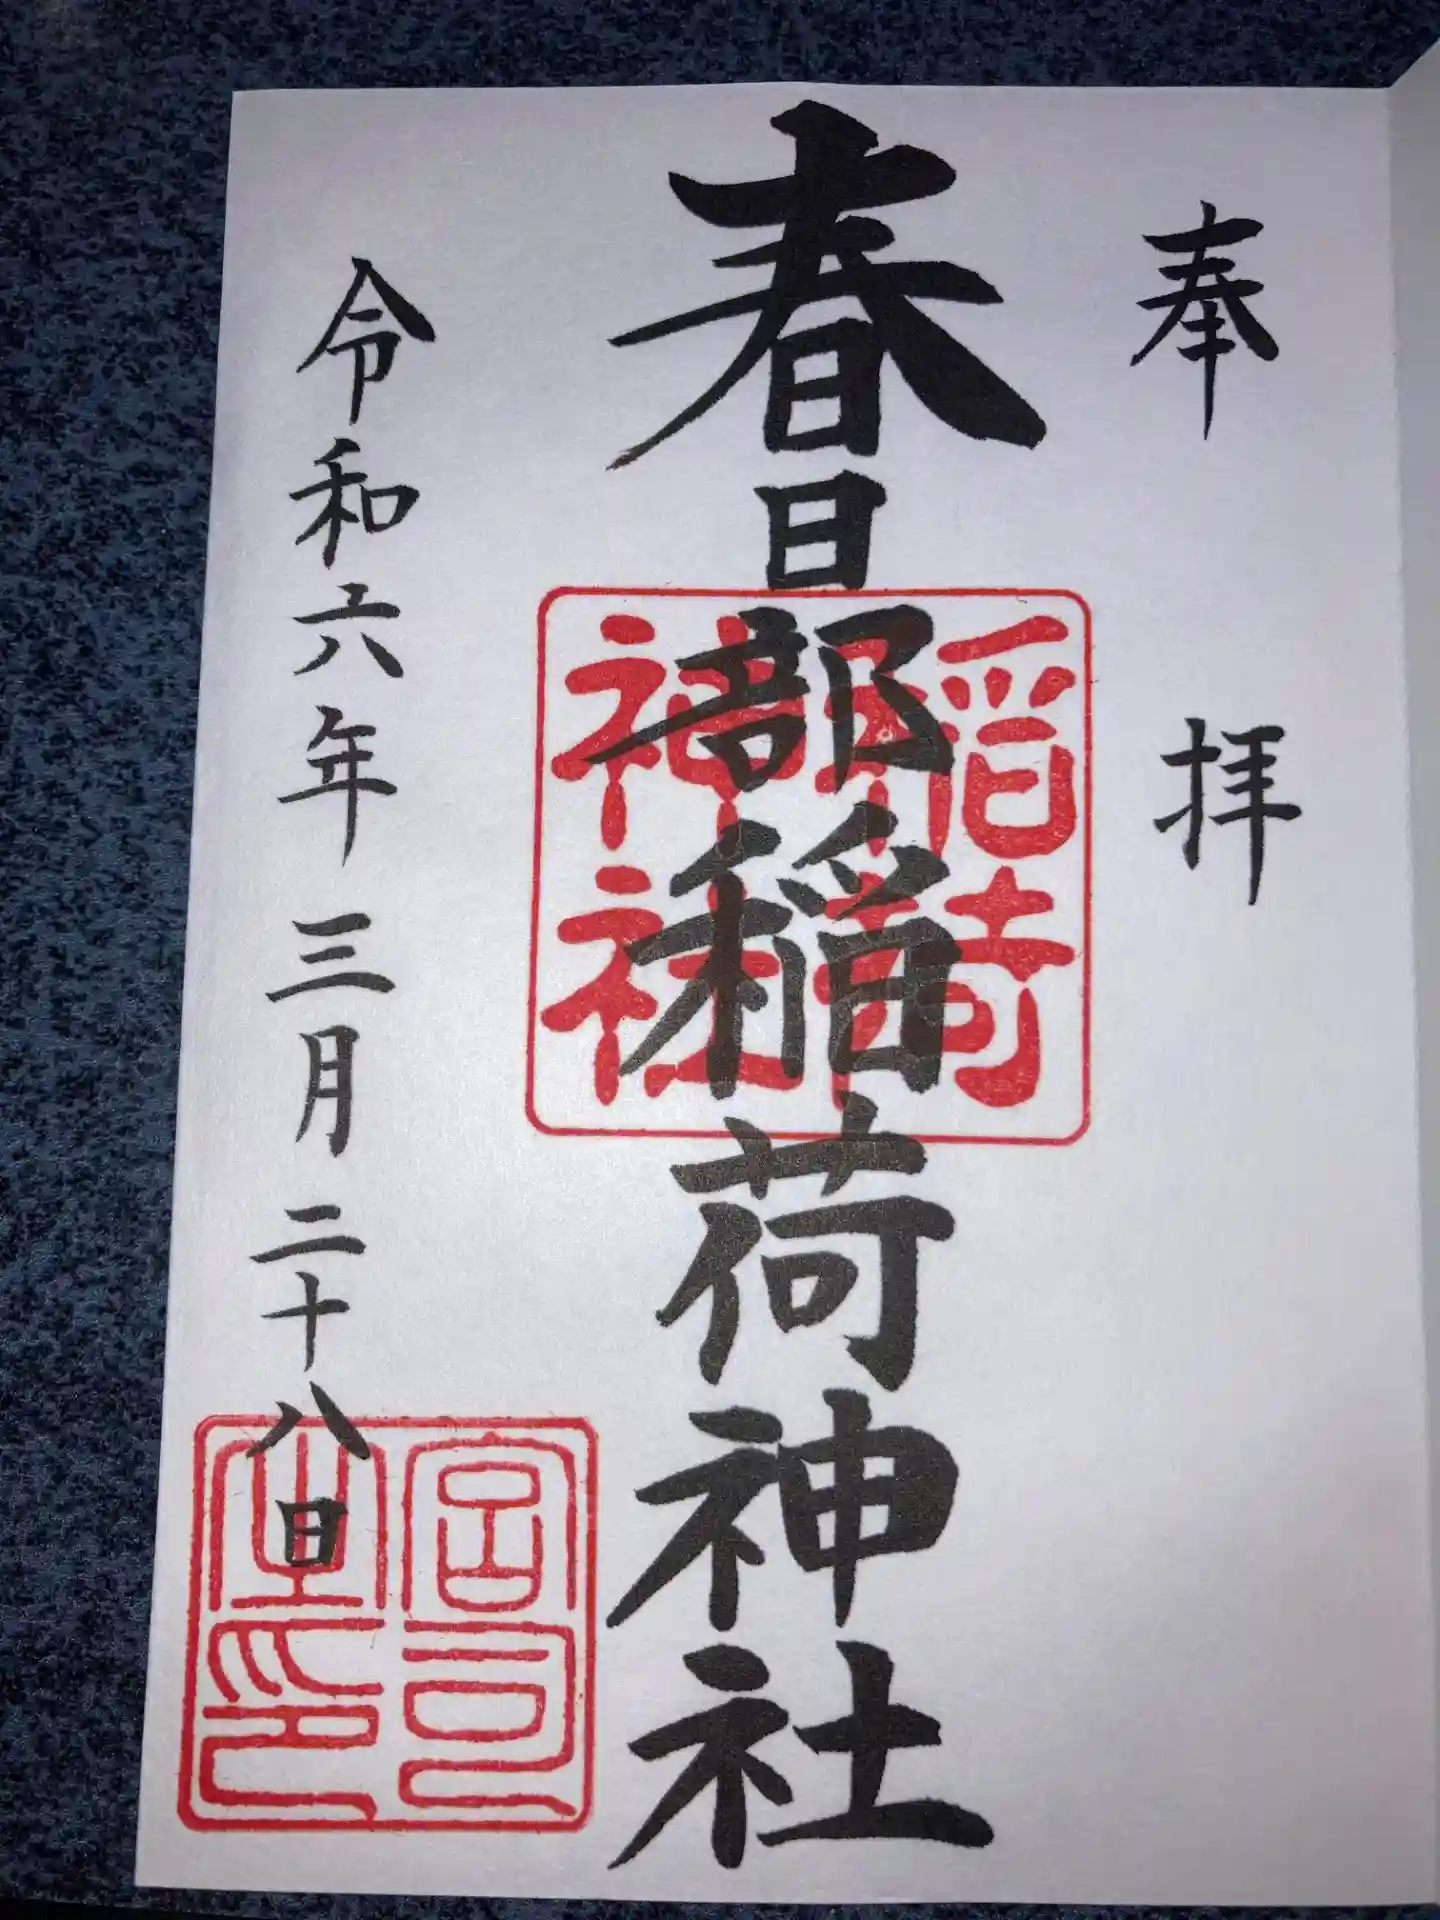 奉拝
春日部稲荷神社
稲荷
神社
令和六年三月二十八日
宮司
之印